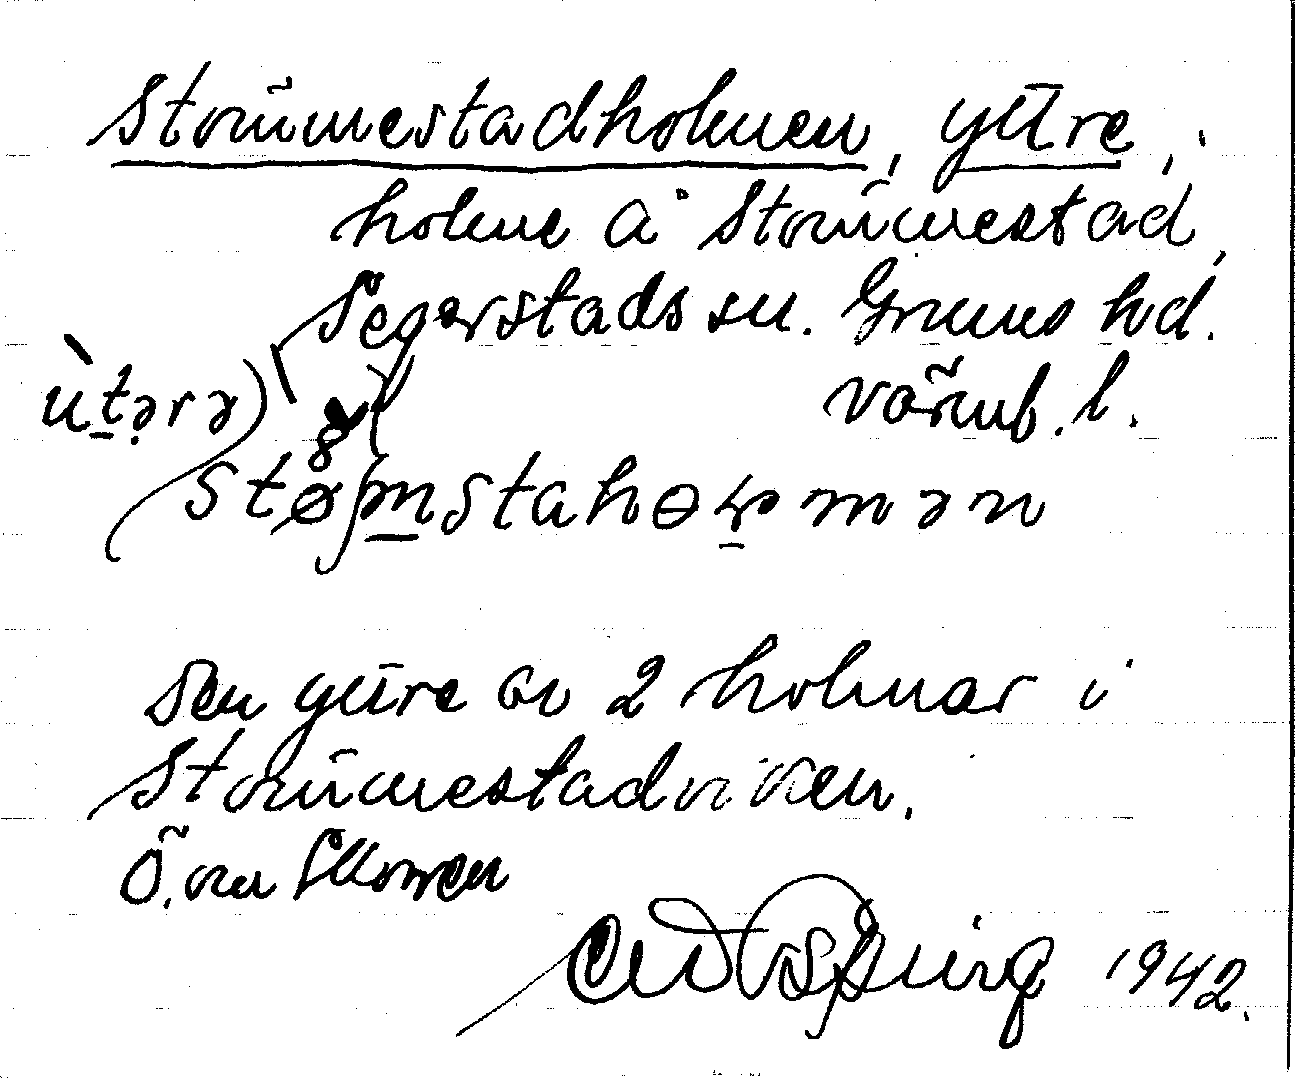 Stommestadholmen, yttre,
holme å Stommestad,
Segerstads sn. Grums hd.
Värmb. l.
ùt̠ərə)
støm̠stahɵɽmən
Den yttre av 2 holmar i
Stommestadviken.
Ö. om Skogen
1942.